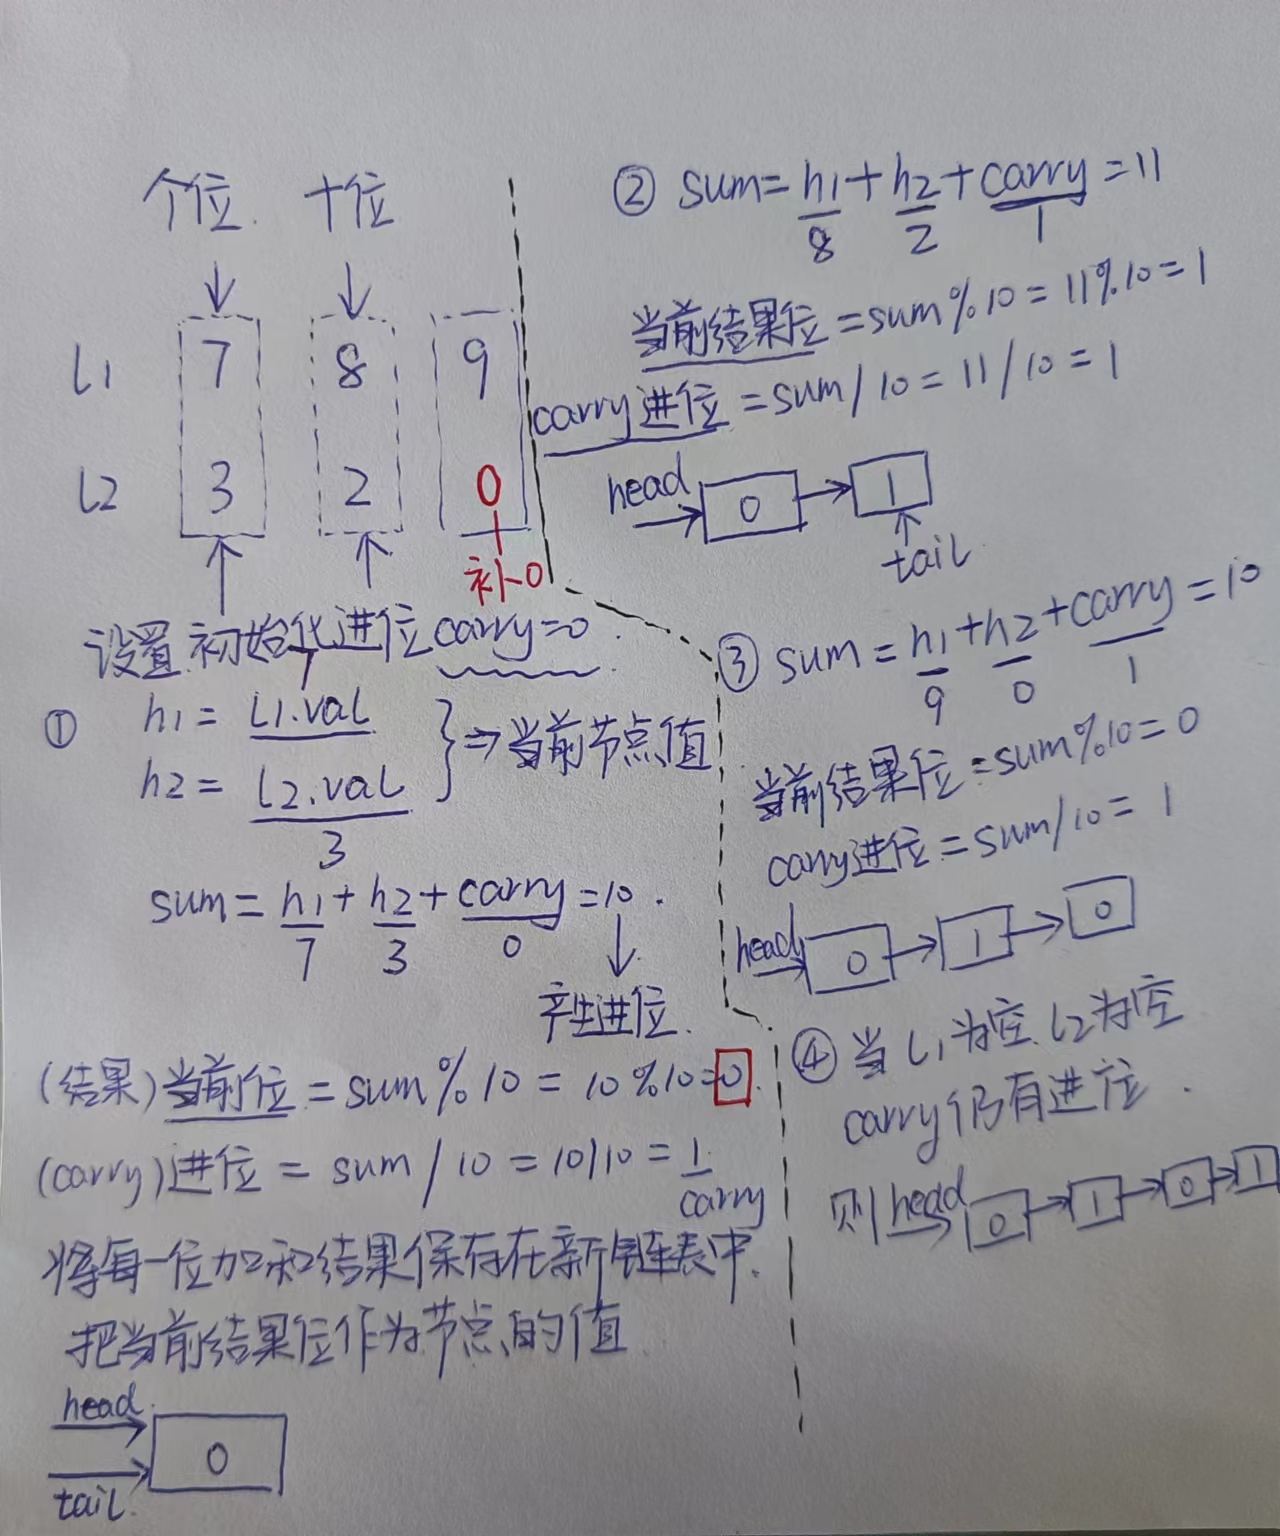 个位. 十位
l1 7 8 9
l2 3 2 0
补0
设置初始化进位carry=0.
① h1 = l1.val
7
h2 = l2.val
3
⇒当前节点值
sum=h1+h2+carry=10.
7 3 0
产生进位.
(结果)当前位=sum%10=10%10=0.
(carry)进位=sum/10=10/10=1
carry
将每一位加和结果保存在新链表中.
把当前结果位作为节点的值.
head
0
tail.
② sum=h1+h2+carry=11
8 2 1
当前结果位=sum%10=11%10=1
carry进位=sum/10=11/10=1
head 0 1
tail
③ sum=h1+h2+carry=10
9 0 1
当前结果位=sum%10=0
carry进位=sum/10=1
head 0 1 0
④ 当l1为空 l2为空
carry仍有进位.
则head 0 1 0 1